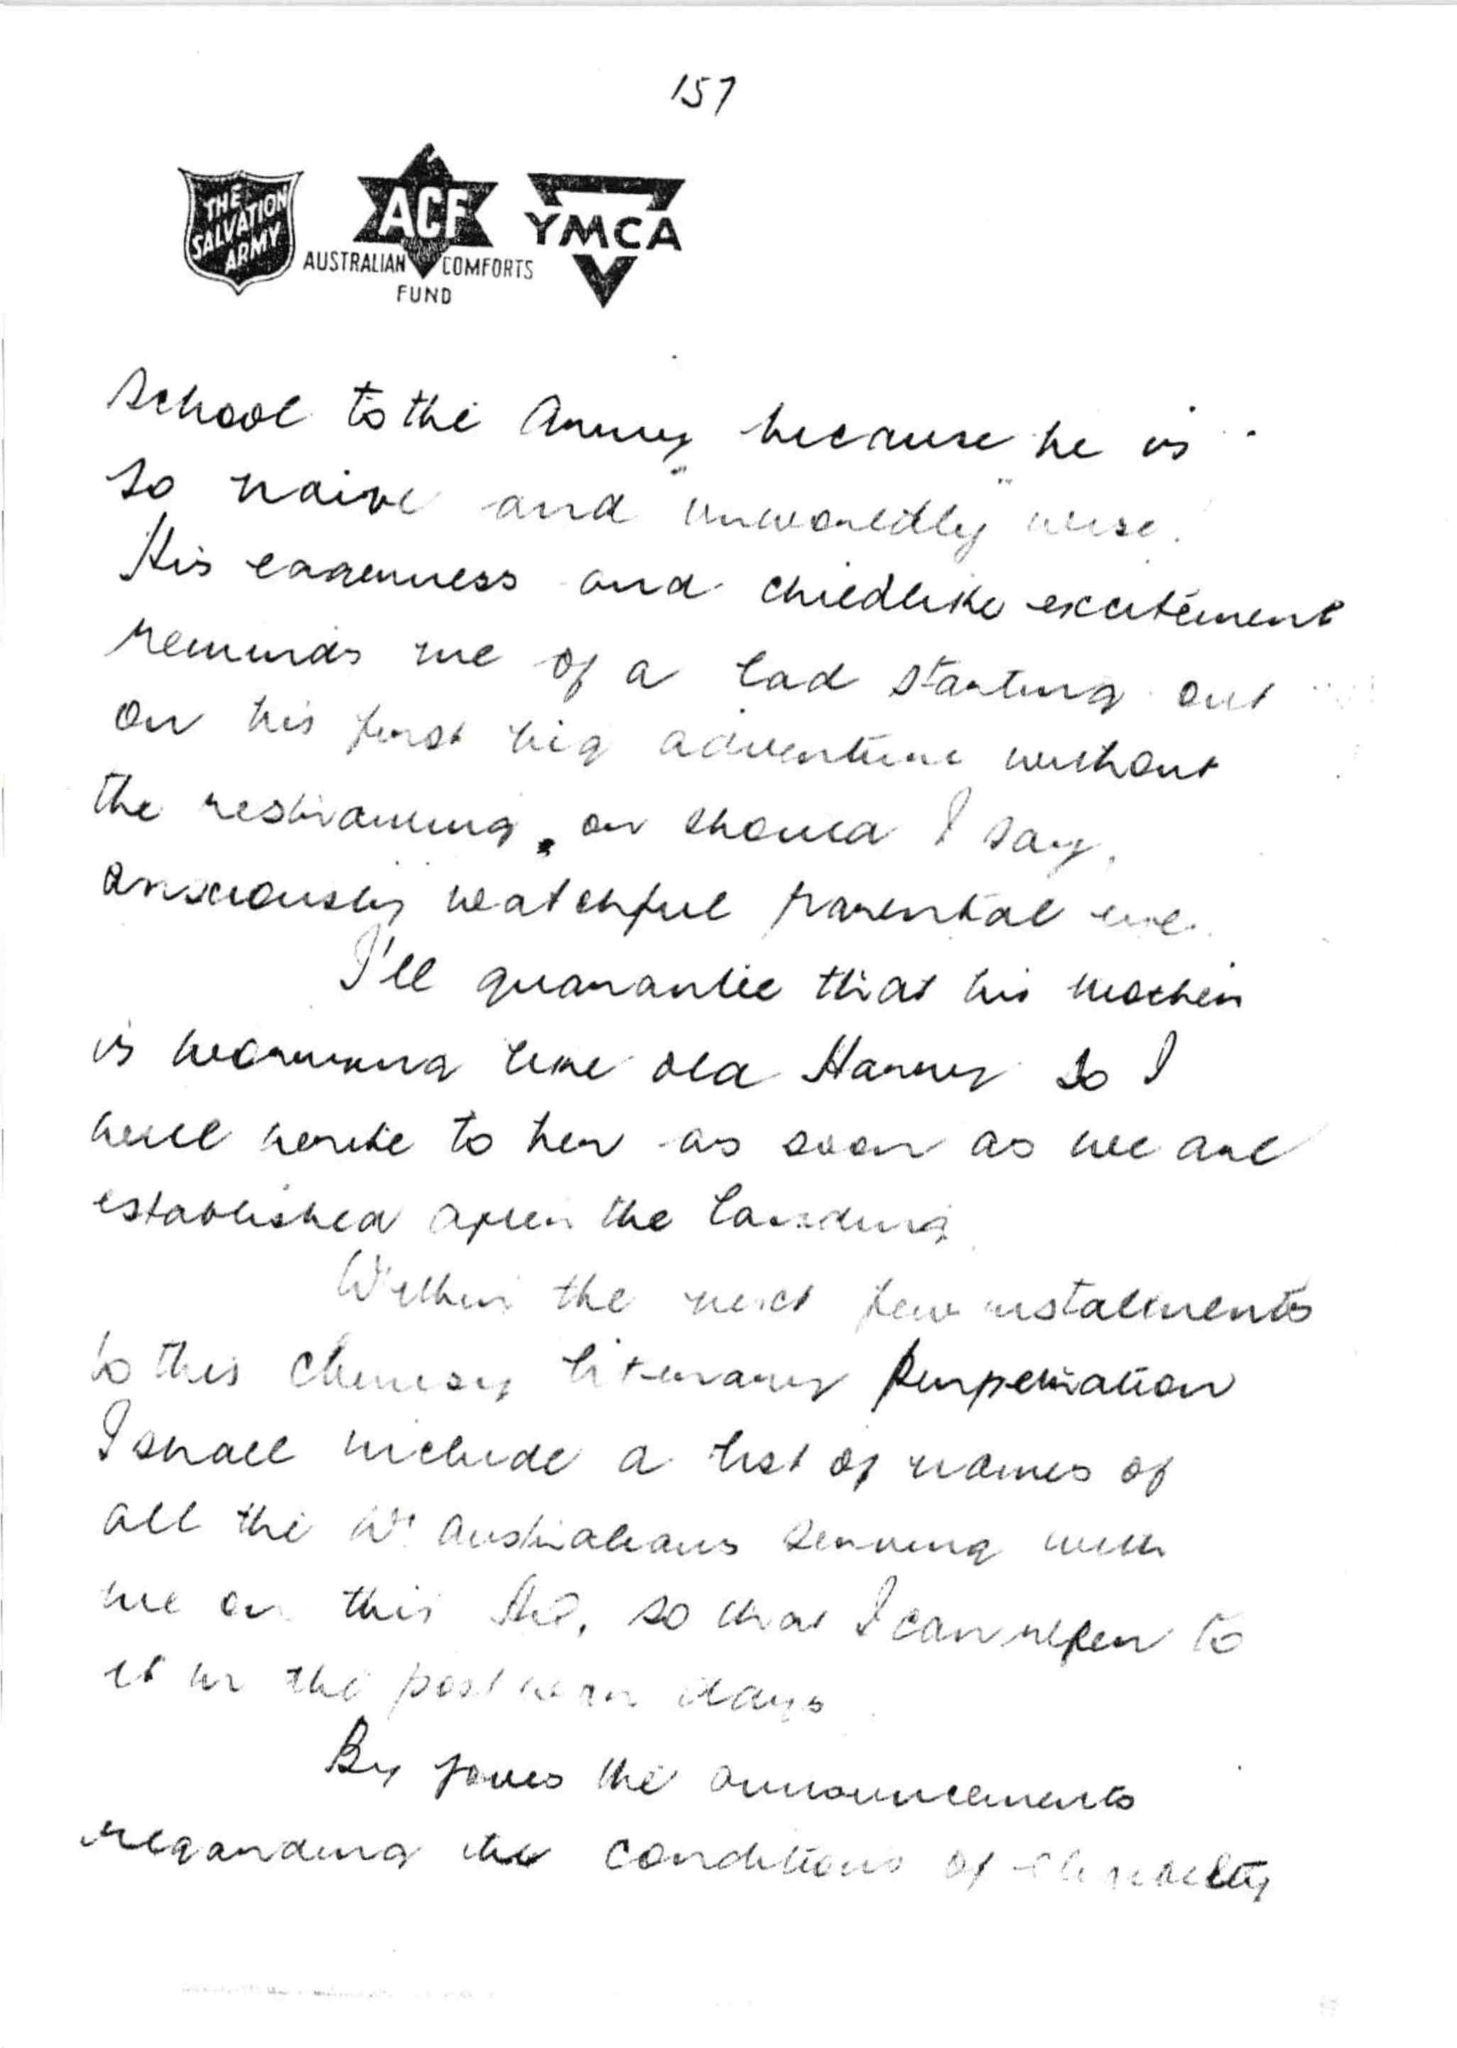 157
THE
SALVATION
ARMY
ACF
AUSTRALIAN COMFORTS
FUND
YMCA
school to the Army because he is
so naive and "unworldly" wise.
His eagerness and childlike excitement
reminds me of a lad starting out
on his first big adventure without
the restraining, or should I say,
anxiously watchful parental eye.
I'll guarantee that his mother
is worrying like old Harry so I
will write to her as soon as we are
established after the landing.
Within the next few instalments
to this clumsy literary perpetration
I shall include a list of names of
all the W. Australians serving with
me on this H.Q. so that I can refer to
it in the post war days.
By joves the announcements
regarding the conditions of eligibility